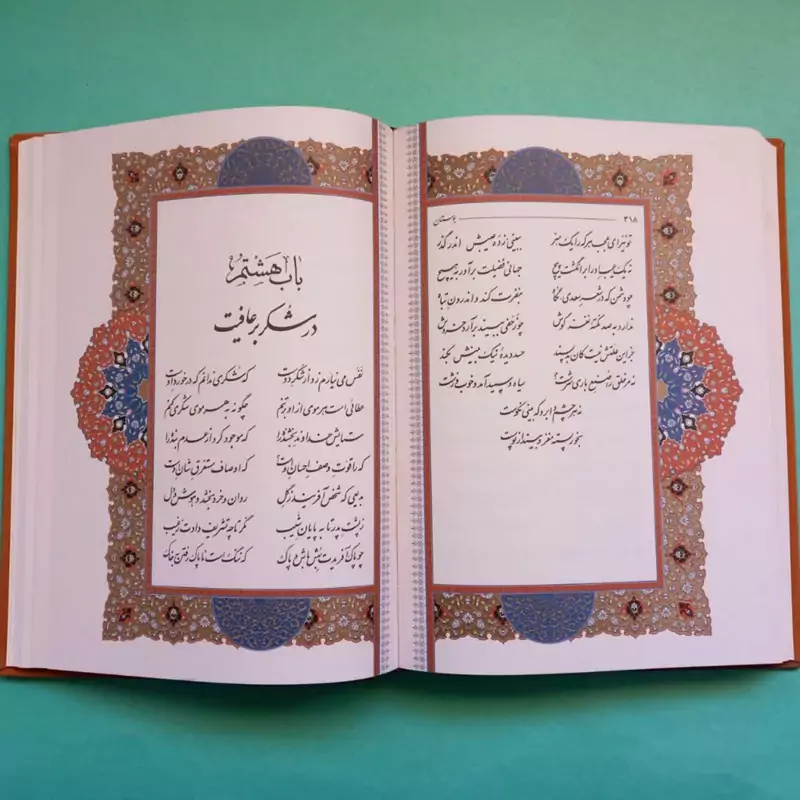 ۲۱۸ بوستان
تو نیز ای عجب هر که را یک هنر ببینی ز ده عیبش اندر گذر
نه یک عیب او را بر انگشت پیچ جهانی فضیلت برآور به هیچ
چو دشمن که در شعر سعدی، نگاه به نفرت کند و اندرون تباه
ندارد به صد نکتهٔ نغز گوش چو زحفی ببیند برآرد خروش
جز این علتش نیست کان بدپسند حسد دیدهٔ نیک بینش بکند
نه مر خلق را صنع باری سرشت؟ سیاه و سپید آمد و خوب و زشت
نه هر چشم و ابرو که بینی نکوست
بخور پسته مغز و بینداز پوست
باب هشتم
در شکر بر عافیت
نفس می نیارم زد از شکر دوست که شکری ندانم که در خورد اوست
عطائی است هر موی از او بر تنم چگونه به هر موی شکری کنم
ستایش خداوند بخشنده را که موجود کرد از عدم بنده را
که را قوت وصف احسان اوست؟ که اوصاف مستغرق شأن اوست
بدیعی که شخص آفریند ز گل روان و خرد بخشد و هوش و دل
ز پشت پدر تا به پایان شیب نگر تا چه تشریف دادت ز غیب
چو پاک آفریدت بهش باش و پاک که ننگ است ناپاک رفتن به خاک